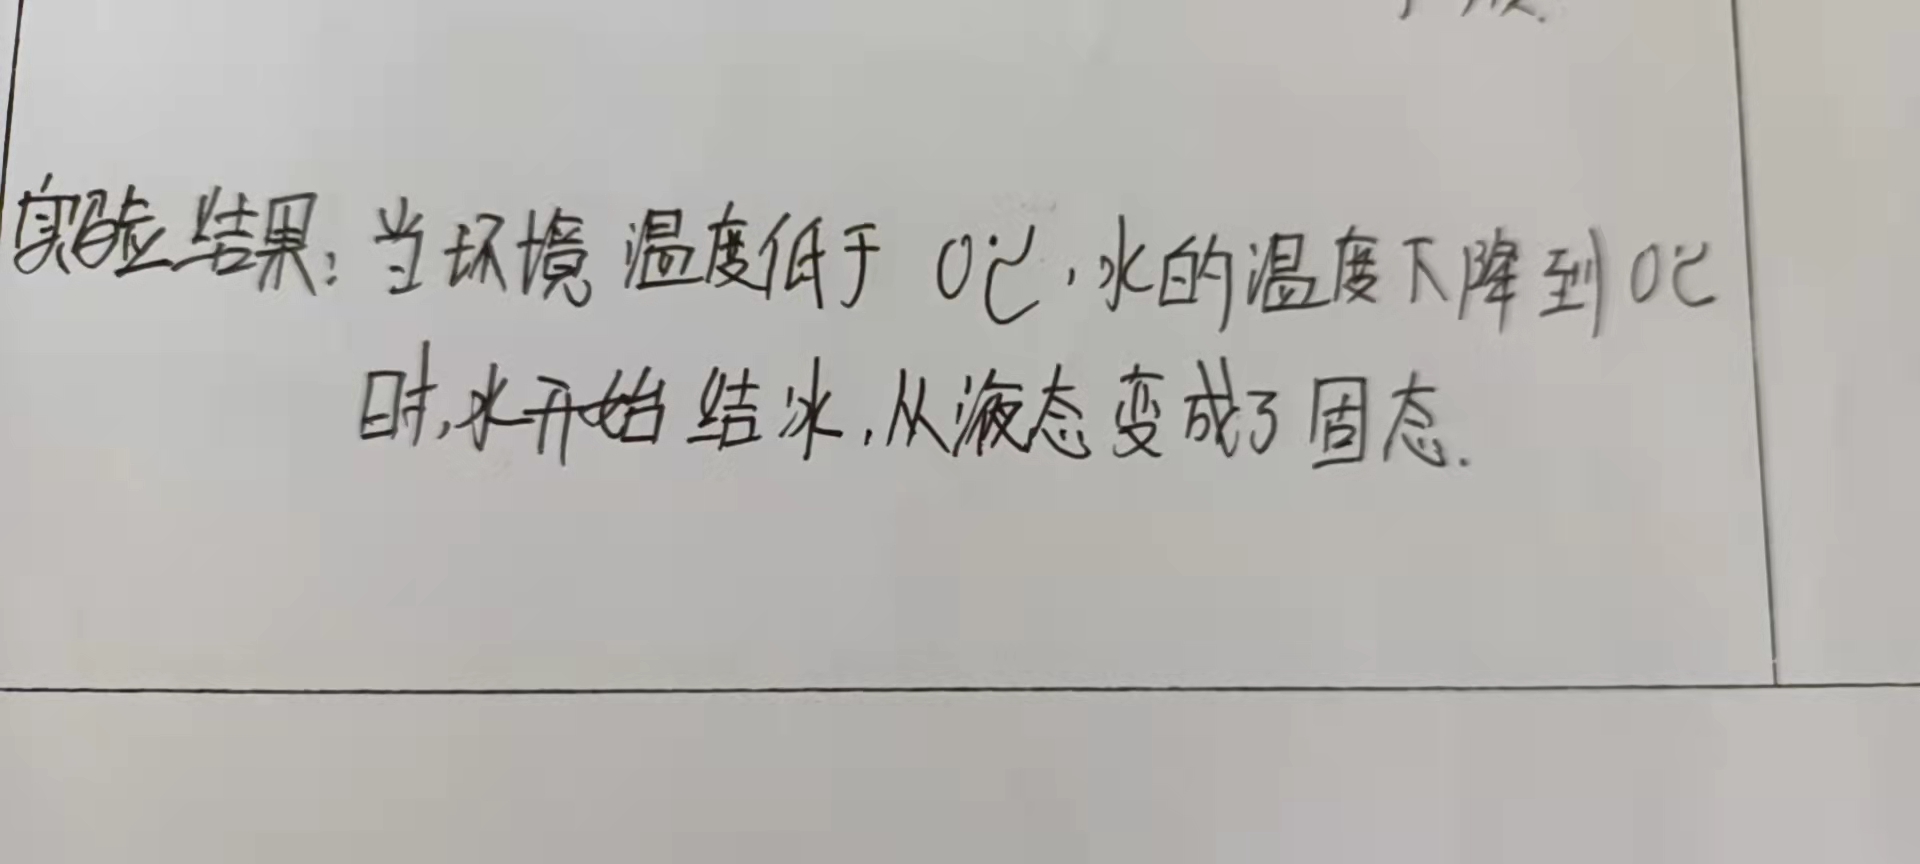 实验结果:当环境温度低于 0℃,水的温度下降到0℃
时,水开始结冰,从液态变成了固态.